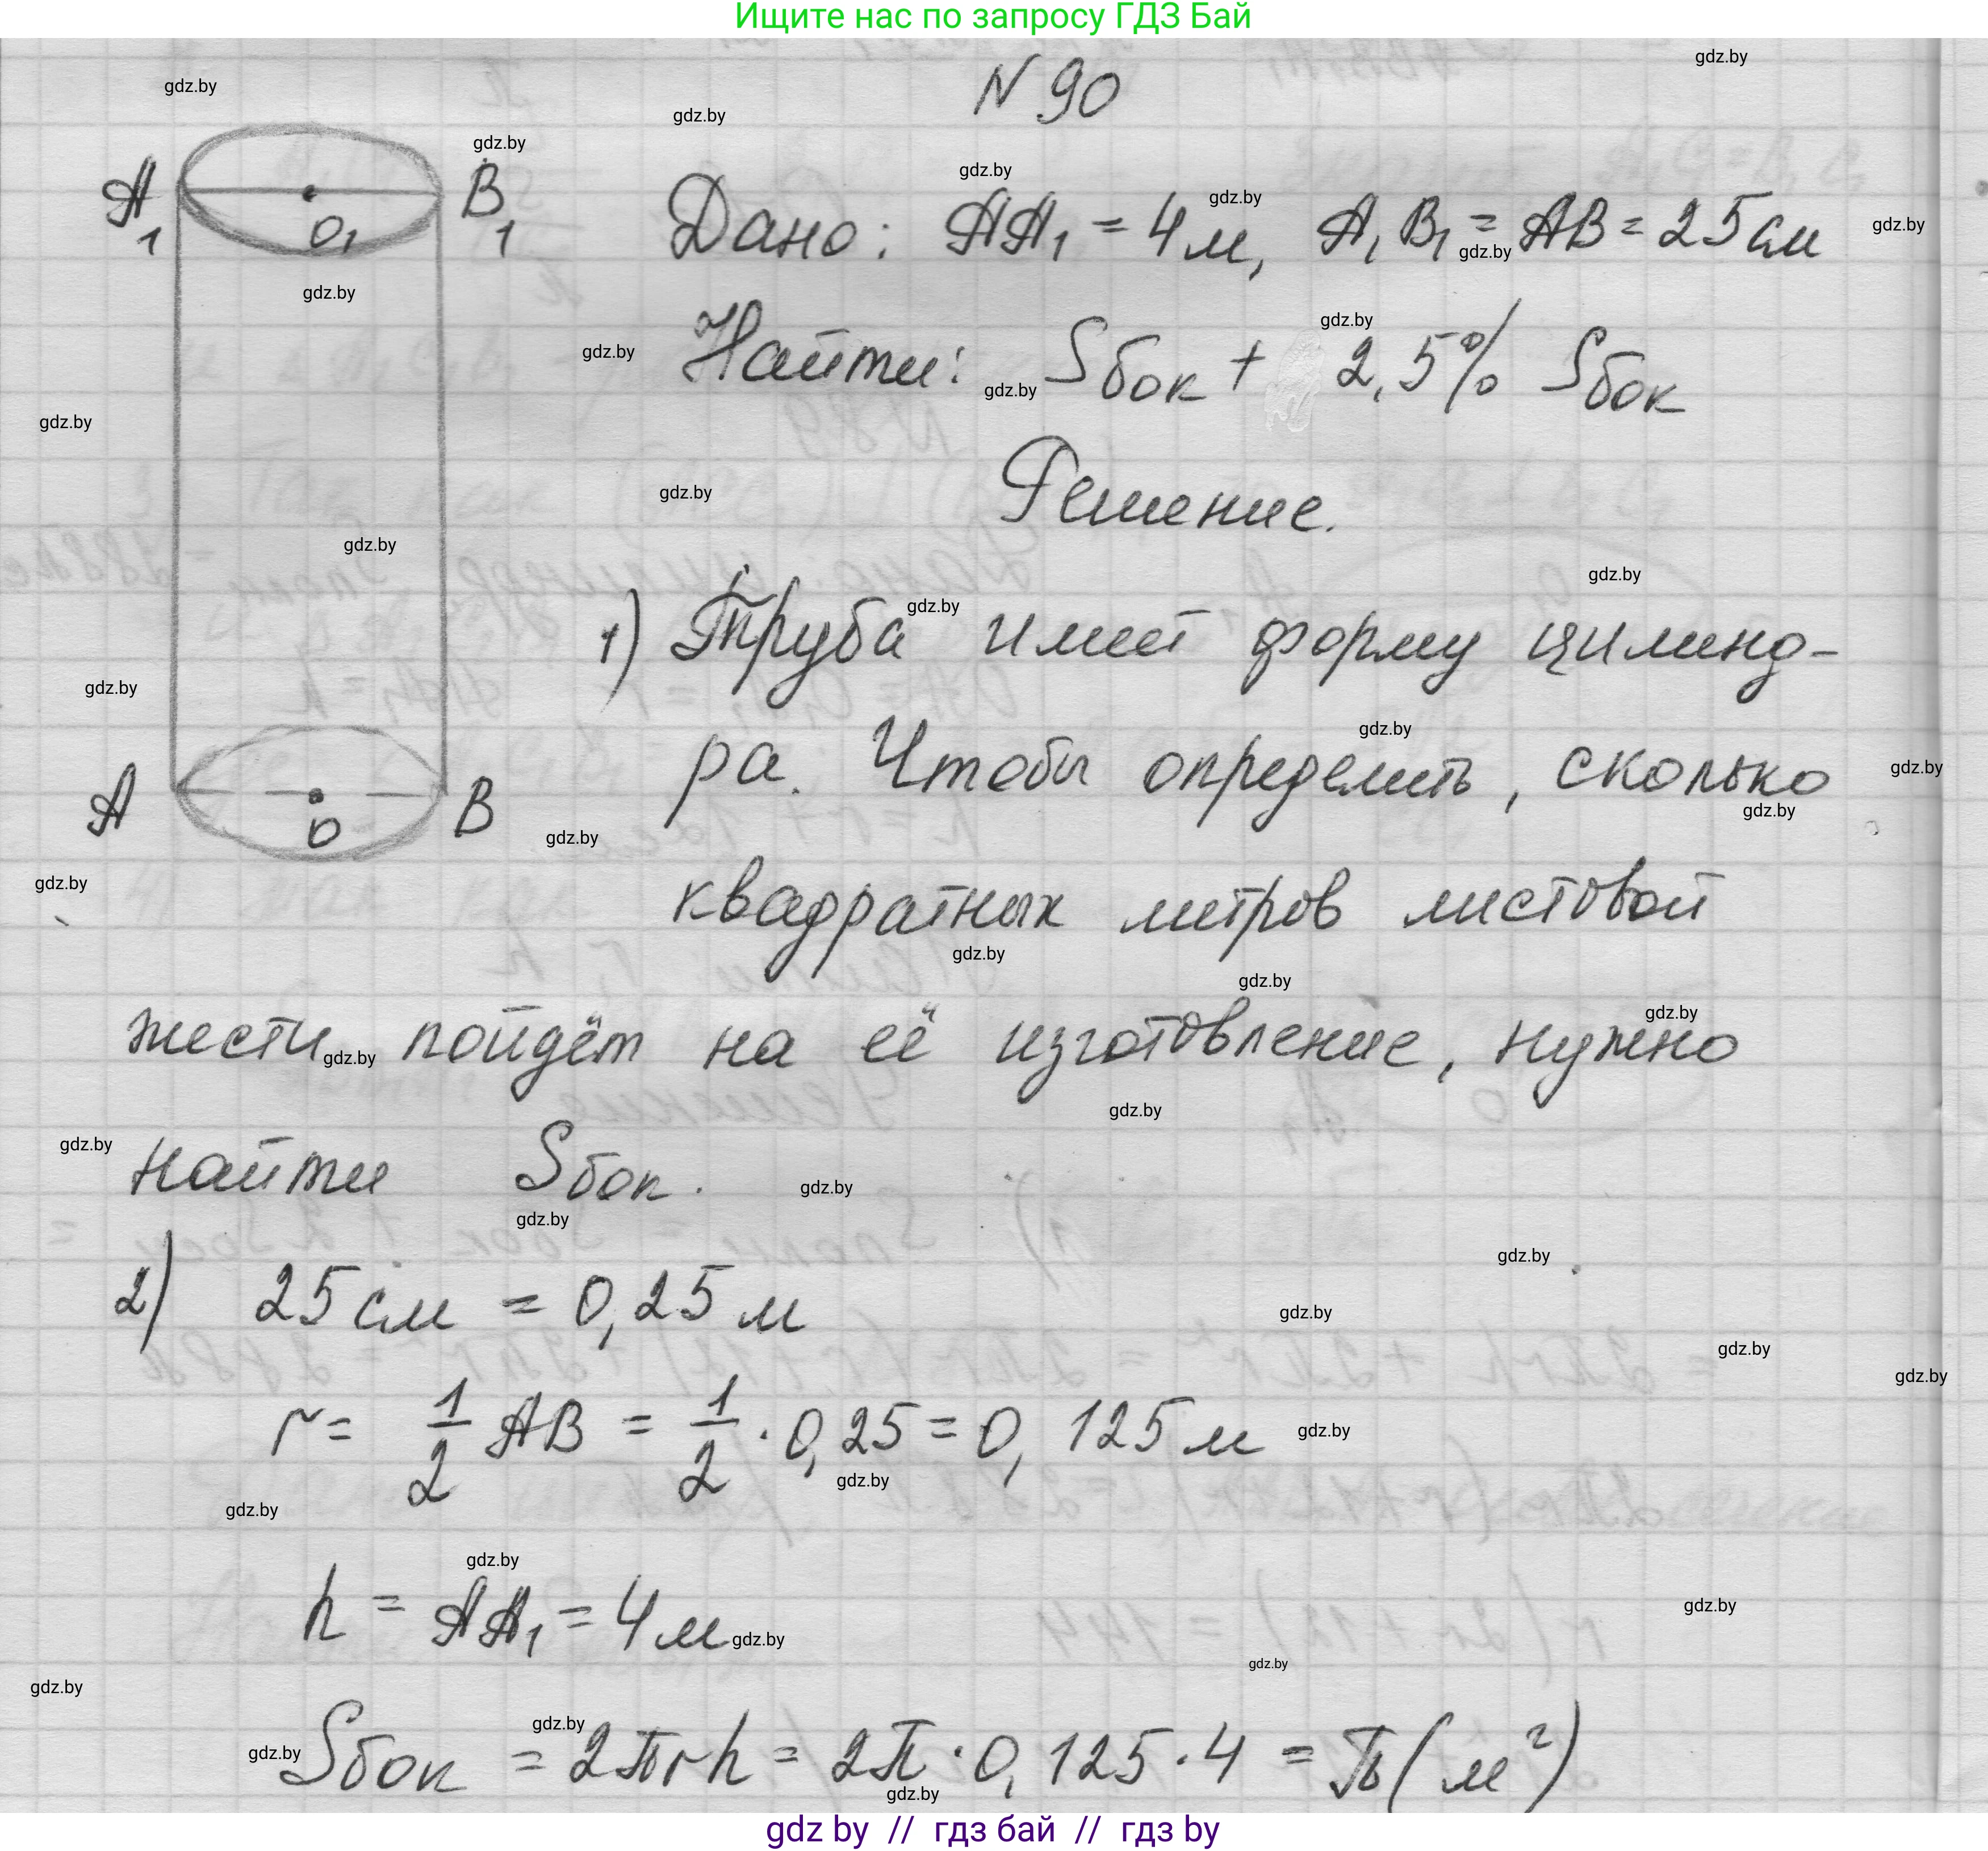 Ищите нас по запросу ГДЗ Бай
N 90
A1 B1 O1
Дано: AA1 = 4 м, A1B1 = AB = 25 см
Найти: Sбок + 2,5% Sбок
Решение.
1) Труба имеет форму цилинд-
ра. Чтобы определить, сколько
A O B
квадратных метров листовой
жести пойдёт на её изготовление, нужно
найти Sбок.
2) 25 см = 0,25 м
r = 1/2 AB = 1/2 · 0,25 = 0,125 м
h = AA1 = 4 м
Sбок = 2πrh = 2π · 0,125 · 4 = π (м²)
gdz by // гдз бай // гдз by